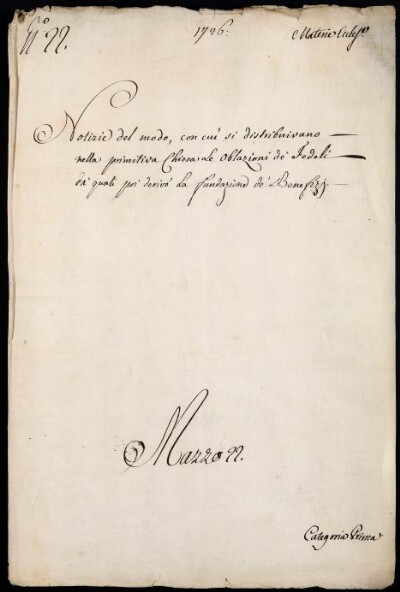 N.º 22.
1726:
Materie Eccles.e
Notizie del modo, con cui si distribuivano
nella primitiva Chiesa Le Oblazioni de' Fedeli
da' quali poi derivò La fundazione de' Benefizj.
Mazzo 22.
Categoria Prima